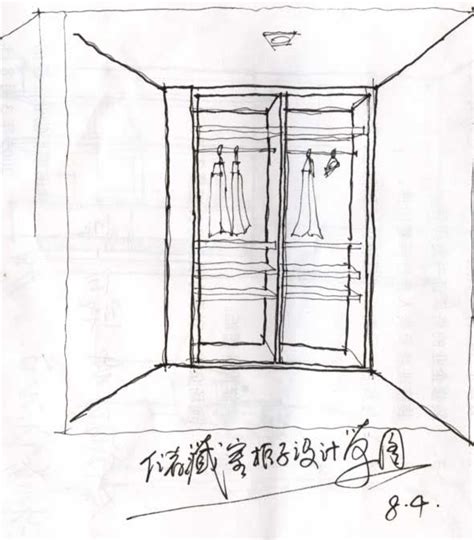 储藏室柜子设计草图
8.4.